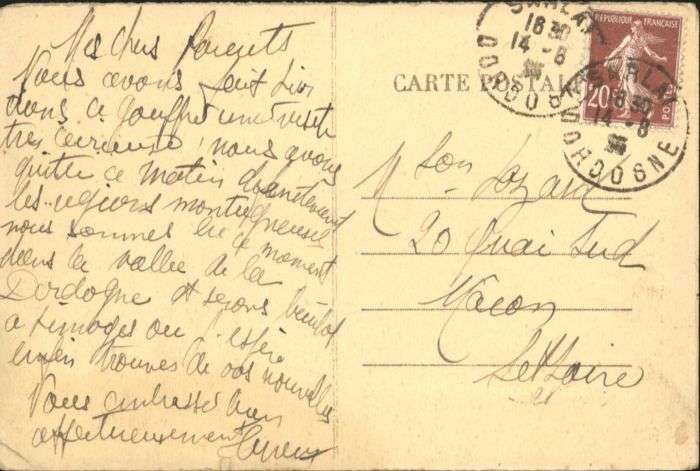 Mes chers Parents
Nous avons fait hier
dans ce gouffre une visite
très curieuse, nous avons
quitté ce matin
les régions montagneuses
nous sommes en ce moment
dans la vallée de la
Dordogne et serons bientôt
a Limoges ou j'espère
enfin trouver de vos nouvelles
Vous embrasse bien
affectueusement
CARTE POSTALE
SARLAT
18 30
14 - 8
DORDOGNE
REPUBLIQUE FRANÇAISE
20
POSTES
SARLAT
18 30
14 - 8
DORDOGNE
20 Quai Sud
Macon
S et Loire